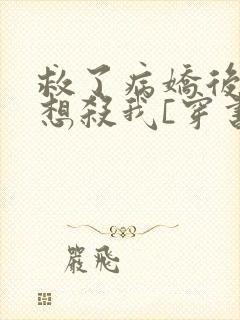 救了病嬌後
想殺我[穿書
嚴飛